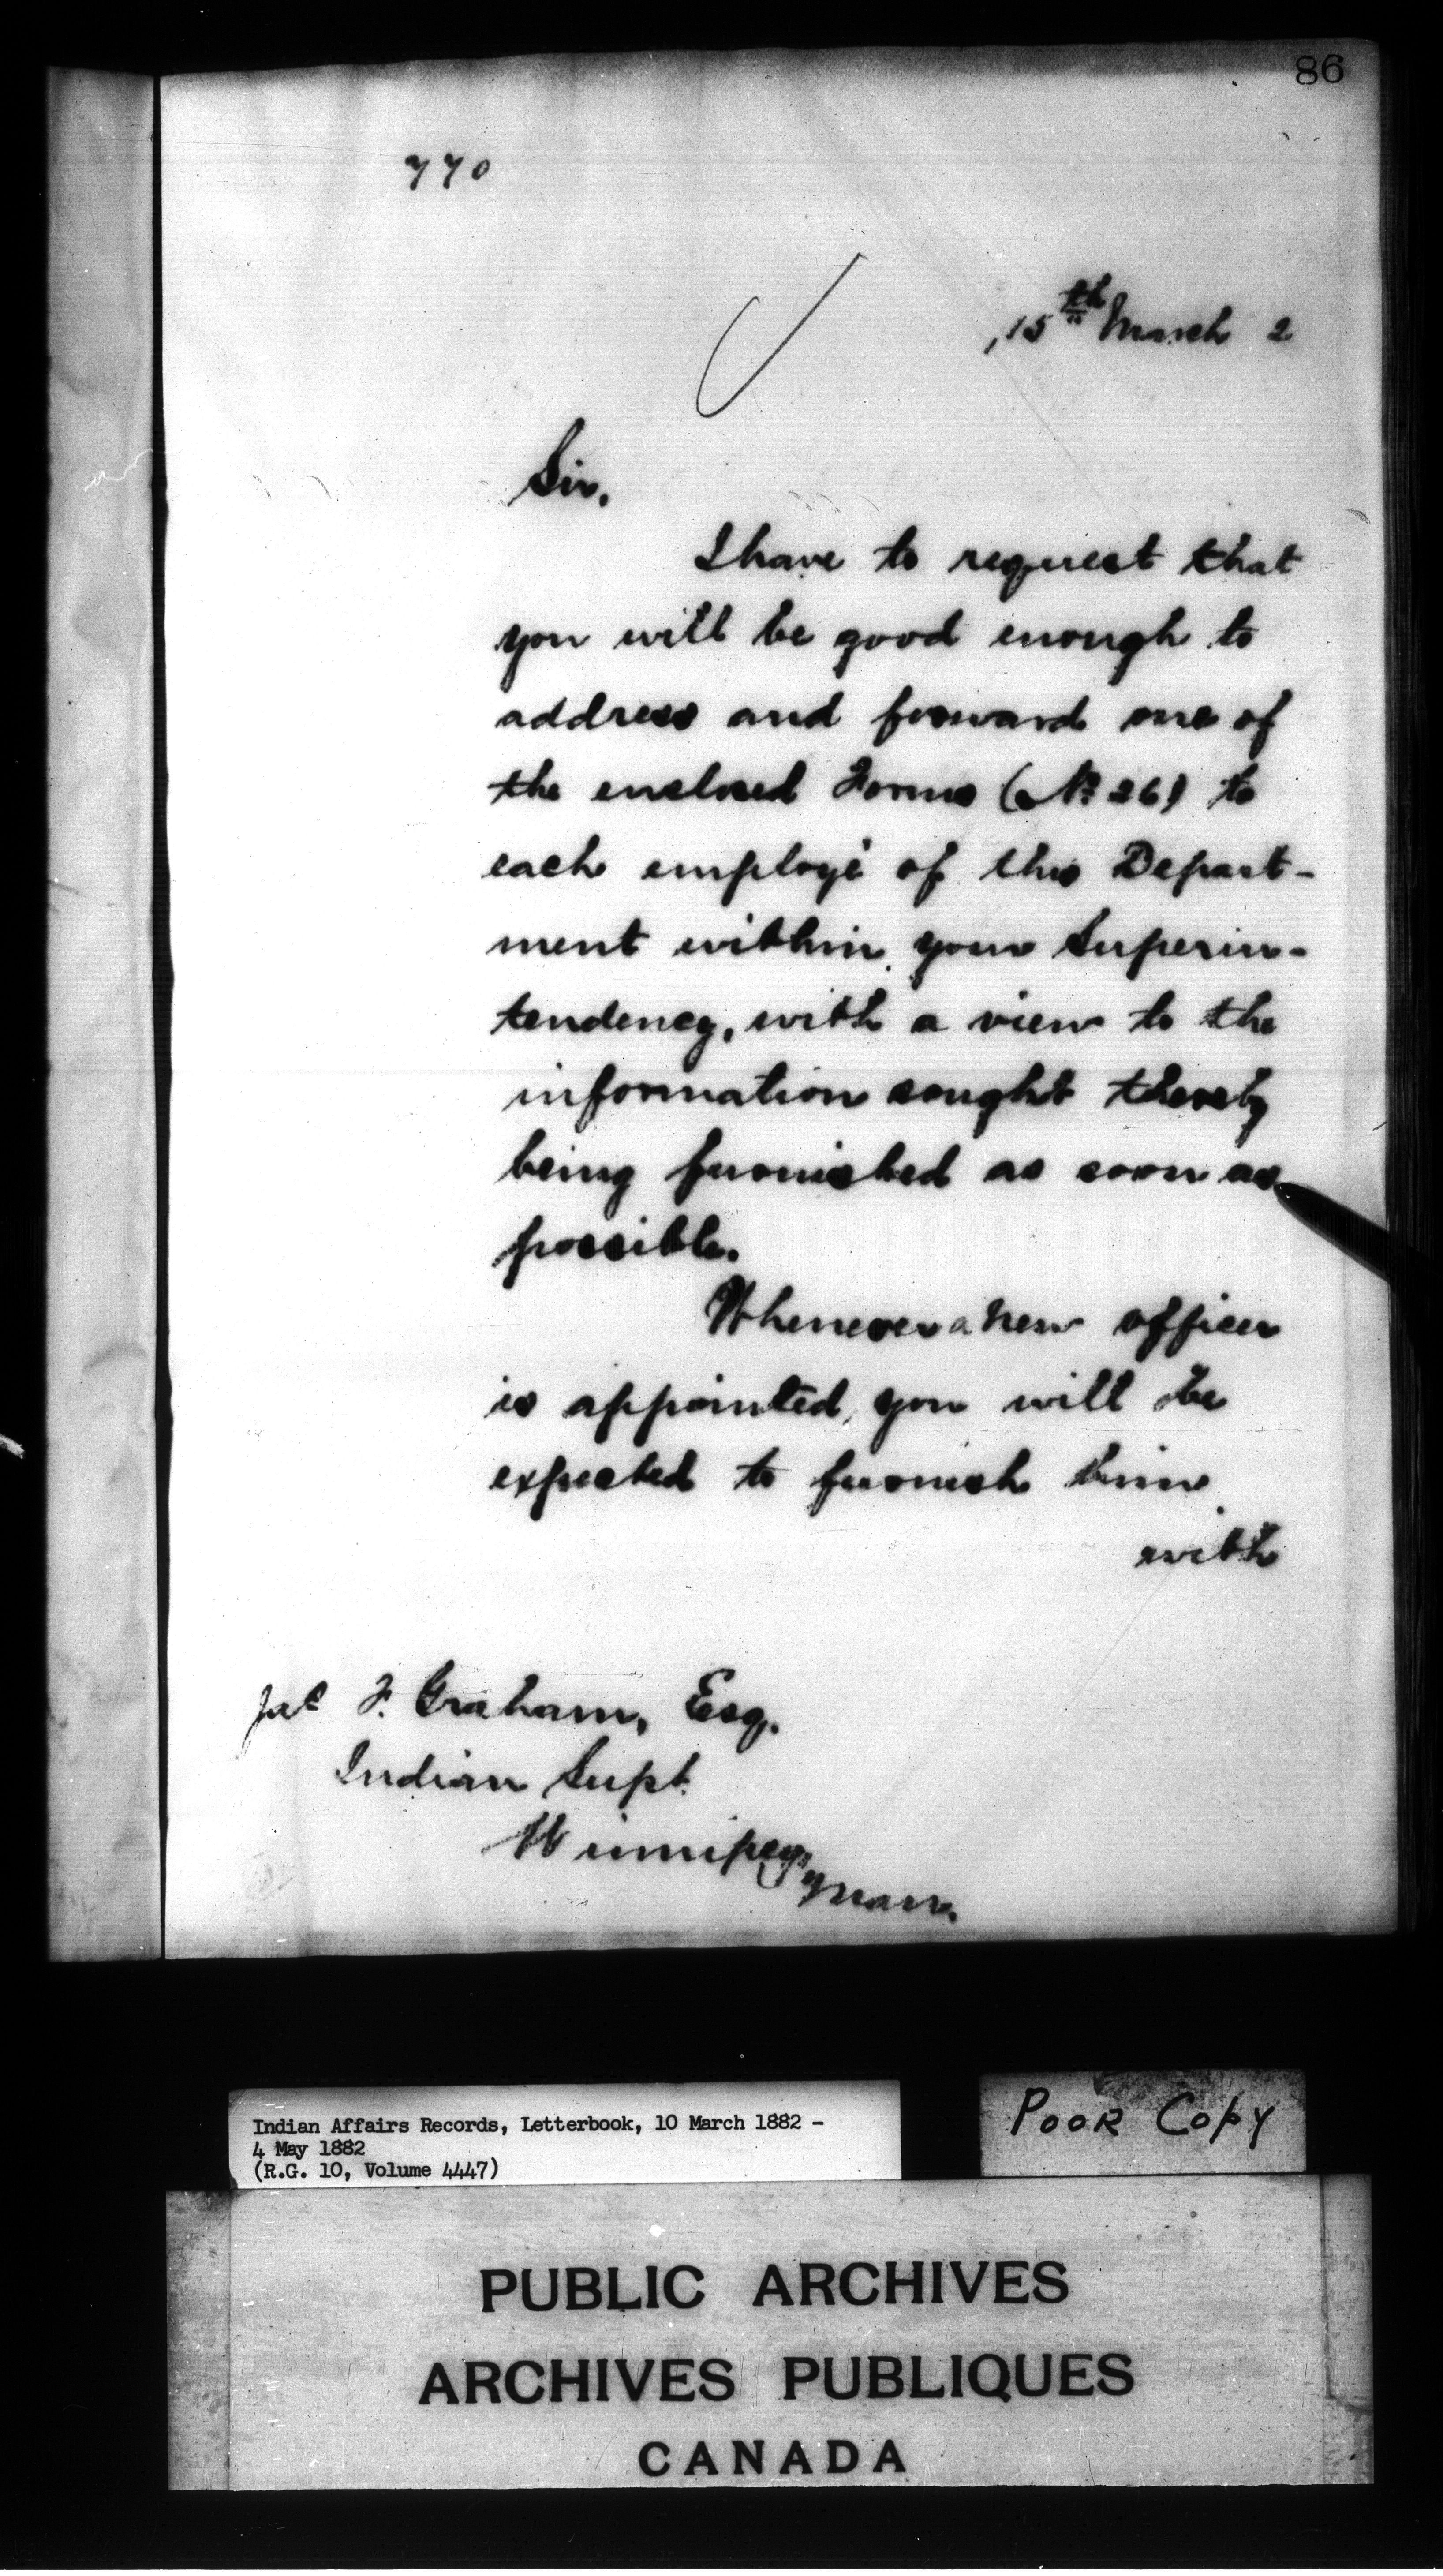 86
770
15th March 2
Sir,
I have to request that
you will be good enough to
address and forward one of
the enclosed Forms (No 26) to
each employé of this Depart-
ment within your Superin-
tendency, with a view to the
information sought thereby
being furnished as soon as
possible.
Whenever a new officer
is appointed, you will be
expected to furnish him
with
F. Graham, Esq.
Indian Supt.
Winnipeg,
Man.
Indian Affairs Records, Letterbook, 10 March 1882 -
4 May 1882
(R.G. 10, Volume 4447)
POOR COPY
PUBLIC ARCHIVES
ARCHIVES PUBLIQUES
CANADA